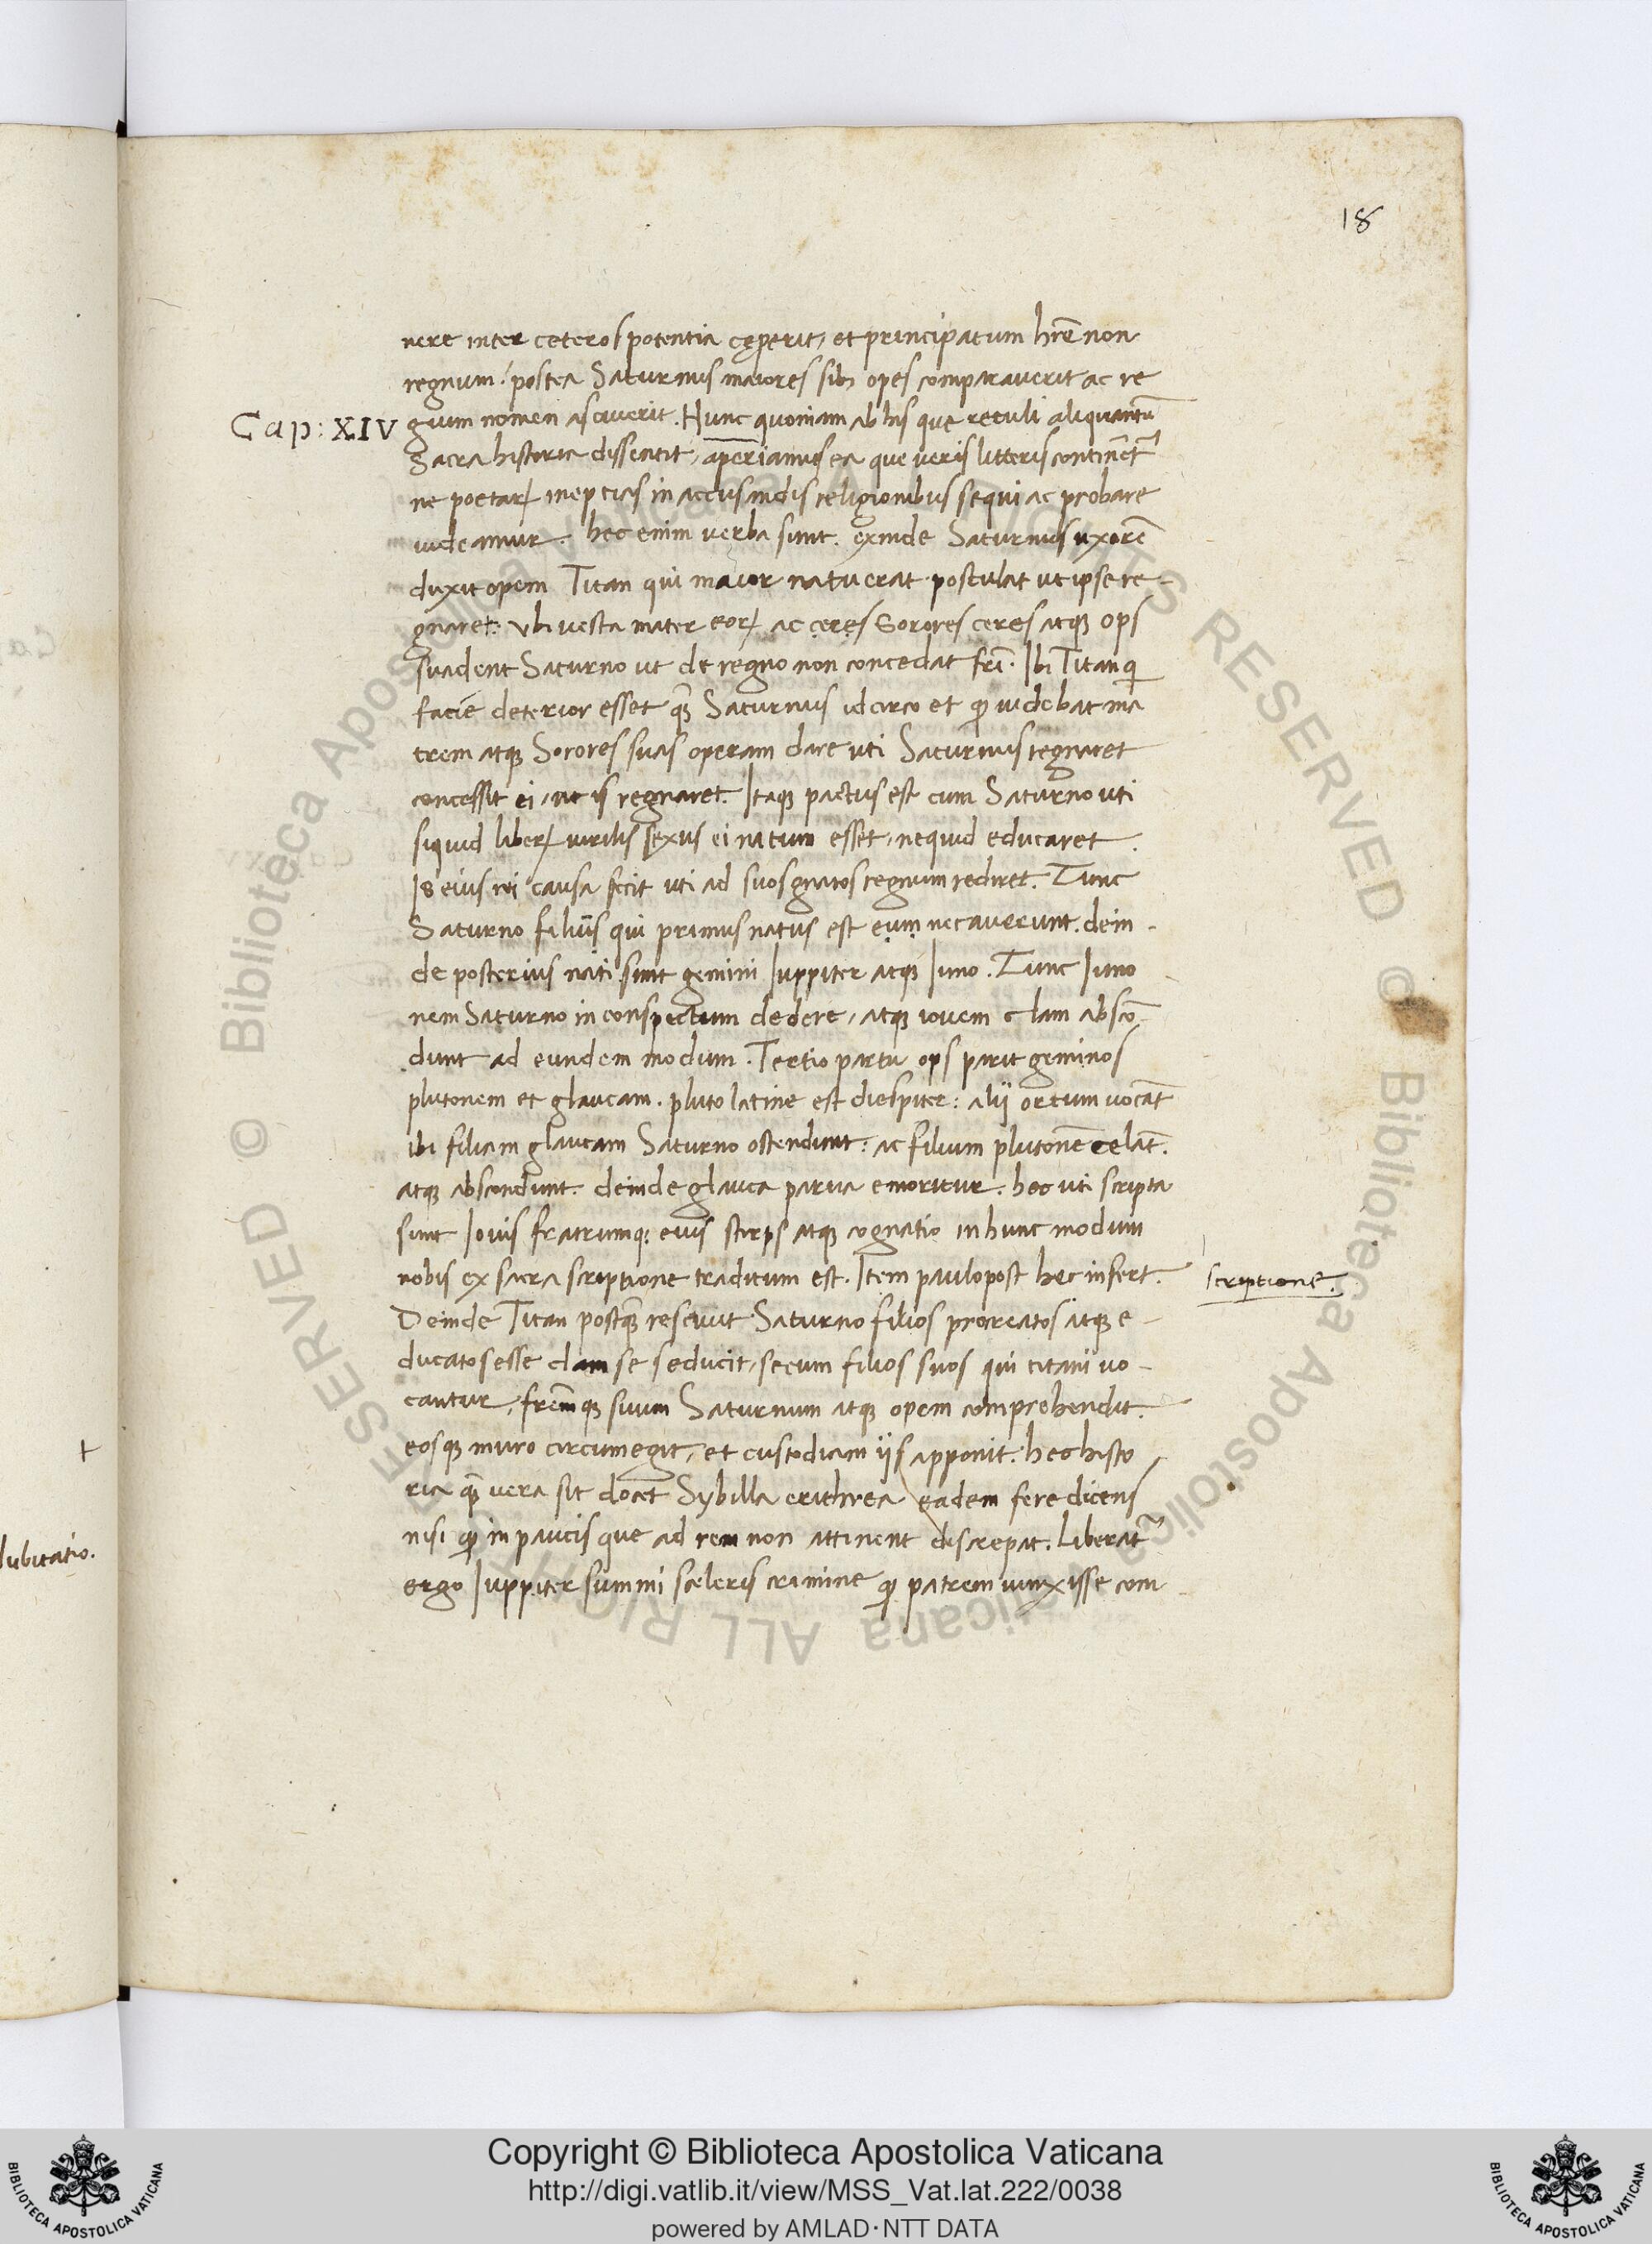 18
nere inter ceteros potentia cęperit, et principatum hr̄e non
regnum: postea Saturnus maiores sibi opes comparaverit ac re
Cap: XIV
gium nomen asciverit. Hunc quoniam ab his que retuli aliquantū
Sacra historia dissentit, aperiamus ea que veris litteris continēt
ne poetaꝝ ineptias in accusandis religionibus sequi ac probare
uideamur. hec enim verba sunt. exinde Saturnus uxorē
duxit opem Titan qui maior natu erat postulat ut ipse re-
gnaret: vbi vesta mater eoꝝ ac ceres Sorores ceres atqꝫ ops
suadent Saturno ut de regno non concedat frī. Ibi Titan qi
facie deterior esset qꝫ Saturnus idcirco et ꝙ uidebat ma
trem atqꝫ Sorores suas operam dare uti Saturnus regnaret
concessit ei, ut is regnaret. Itaqꝫ pactus est cum Saturno uti
siquid liberꝝ uirilis sexus ei natum esset, nequid educaret
Is eius rei causa fecit uti ad suos gnatos regnum rediret. Tunc
Saturno filius qui primus natus est eum necaverunt. dein-
de posterius nati sunt gemini Iuppiter atqꝫ Iuno. Tunc Iuno
nem Saturno in conspectum dedere, atqꝫ iovem clam abscō
dunt ad eundem modum. Tertio partu ops parit geminos
plutonem et glaucam. pluto latine est diespiter: alij orcum uocāt
ibi filiam glaucam Saturno ostendunt: ac filium plutonē celāt.
atqꝫ abscondunt. deinde glauca parua emoritur. hec uti scripta
sunt Iouis fratrumqꝫ eius stirps atqꝫ cognatio in hunc modum
nobis ex sacra scriptione traditum est. Item paulo post hec infert.
scriptione.
Deinde Titan postqꝫ rescivit Saturno filios procreatos atqꝫ e-
ducatos esse clam se seducit, secum filios suos qui titani uo-
cantur, frēmqꝫ suum Saturnum atqꝫ opem comprehendit.
eosqꝫ muro circumegit, et custodiam ijs apponit. hec histo
ria qꝫ vera sit docet Sybilla erithrea eadem fere dicens
nisi ꝙ in paucis que ad rem non attinent discrepat. Liberat̄
ergo Iuppiter summi sceleris crimine ꝙ patrem uinxisse com
dubitatio.
Copyright © Biblioteca Apostolica Vaticana
http://digi.vatlib.it/view/MSS_Vat.lat.222/0038
powered by AMLAD·NTT DATA
BIBLIOTECA APOSTOLICA VATICANA
BIBLIOTECA APOSTOLICA VATICANA
© Biblioteca Apostolica Vaticana ALL RIGHTS RESERVED
© Biblioteca Apostolica Vaticana ALL RIGHTS RESERVED